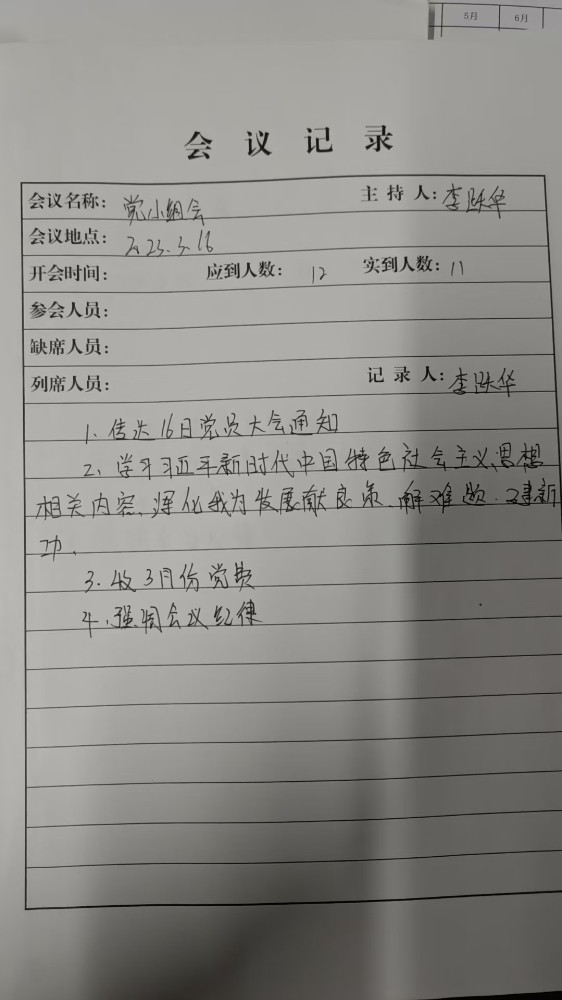 5月 6月
会议记录
会议名称: 党小组会 主持人: 李跃华
会议地点: 2023.3.16
开会时间: 应到人数: 12 实到人数: 11
参会人员:
缺席人员:
列席人员: 记录人: 李跃华
1、传达16日党员大会通知
2、学习习近平新时代中国特色社会主义思想
相关内容、深化我为发展献良策、解难题、建新
功、
3、收3月份党费
4、强调会议纪律